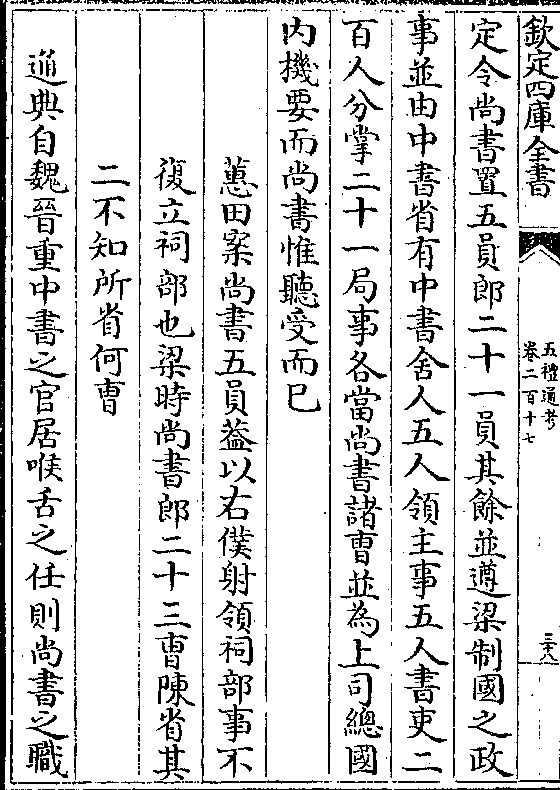 欽定四庫全書
五禮通考
卷二百十七
三八
定令尚書置五員郎二十一員其餘並遵梁制國之政
事並由中書省有中書舍人五人領主事五人書吏二
百人分掌二十一局事各當尚書諸曹並為上司總國
内機要而尚書惟聽受而已
蕙田案尚書五員葢以右僕射領祠部事不
復立祠部也梁時尚書郎二十三曹陳省其
二不知所省何曹
通典自魏晉重中書之官居喉舌之任則尚書之職